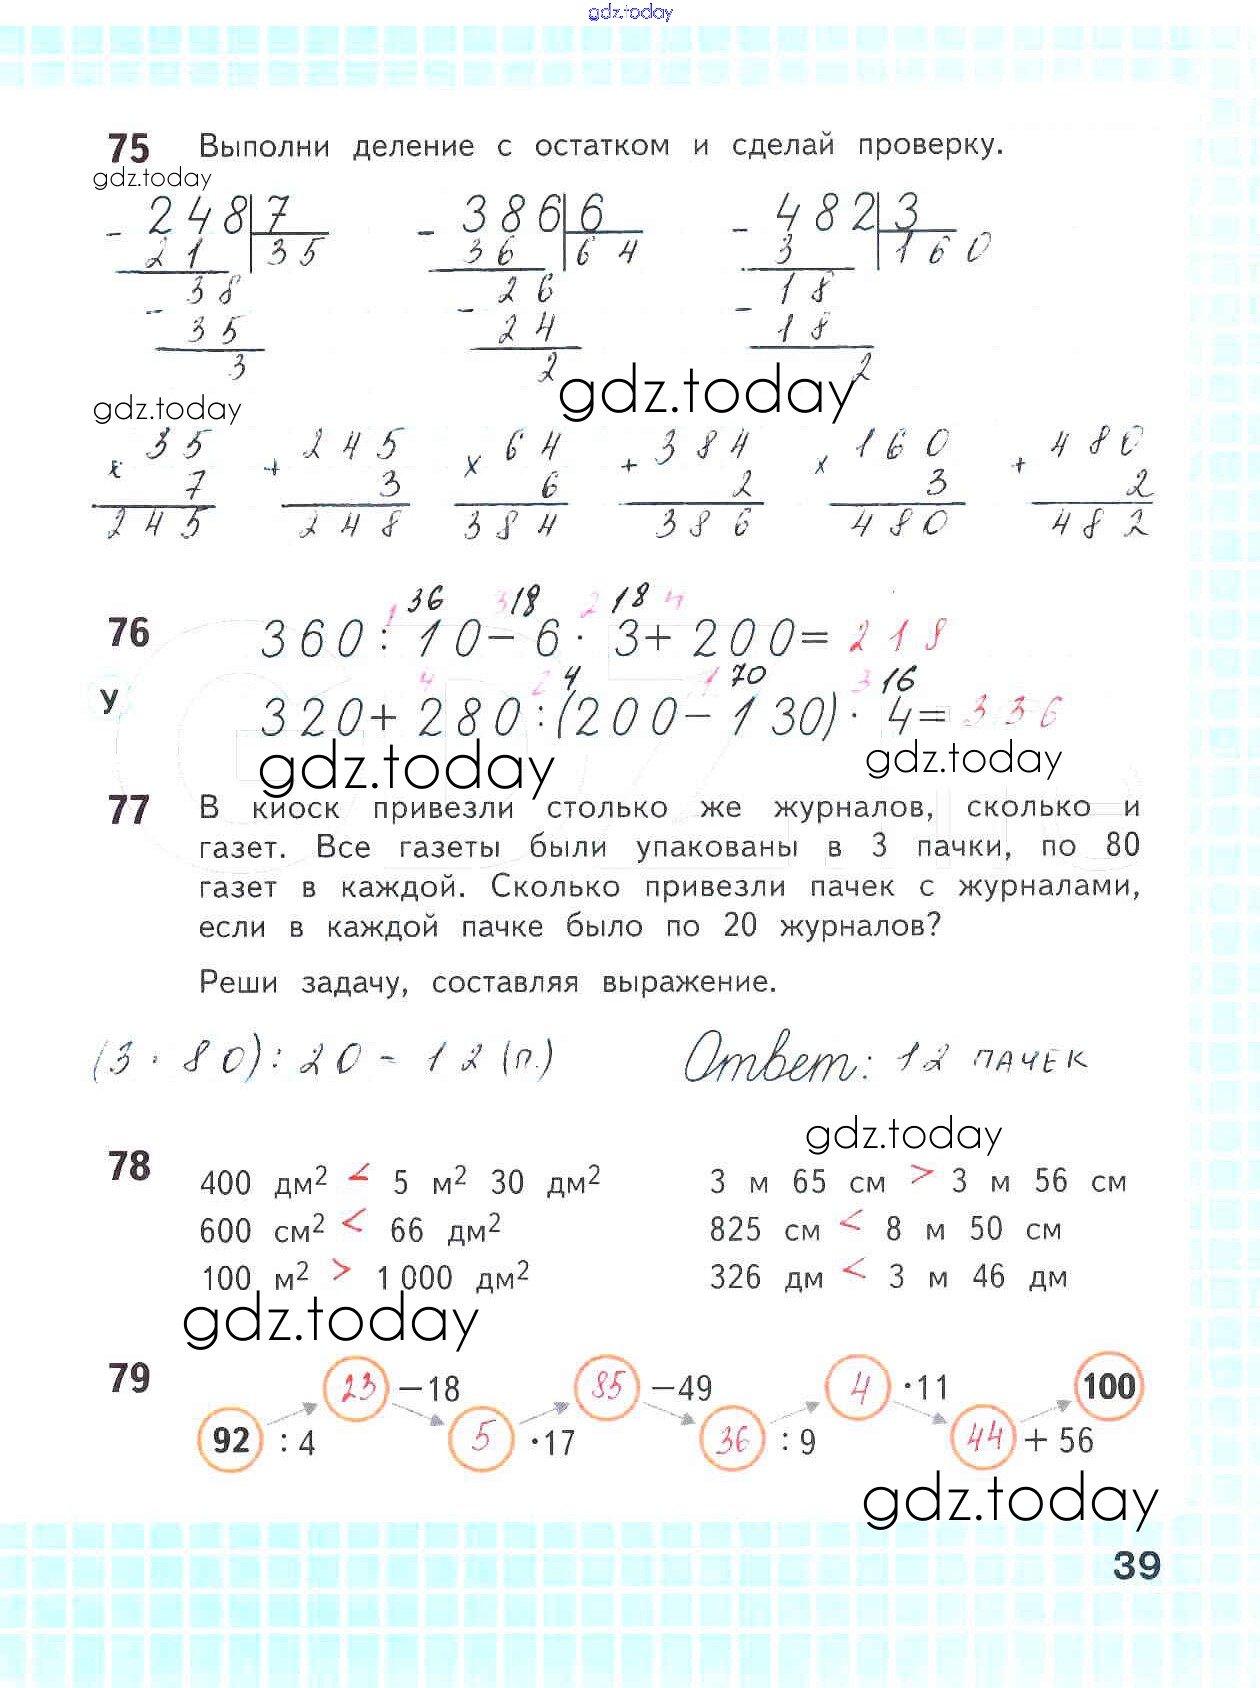 gdz.today
75 Выполни деление с остатком и сделай проверку.
gdz.today
- 248 | 7 - 386 | 6 - 482 | 3
21 35 36 64 3 160
- 38 - 26 - 18
35 24 18
3 2 2
gdz.today
gdz.today
35 245 64 384 160 480
x 7 + 3 x 6 + 2 x 3 + 2
245 248 384 386 480 482
1 36 3 18 2 18 4
76 360 : 10 - 6 · 3 + 200 = 218
4 2 4 1 70 3 16
У 320 + 280 : (200 - 130) · 4 = 336
gdz.today gdz.today
77 В киоск привезли столько же журналов, сколько и
газет. Все газеты были упакованы в 3 пачки, по 80
газет в каждой. Сколько привезли пачек с журналами,
если в каждой пачке было по 20 журналов?
Реши задачу, составляя выражение.
(3 · 80) : 20 = 12 (п.) Ответ: 12 пачек
gdz.today
78 400 дм² < 5 м² 30 дм² 3 м 65 см > 3 м 56 см
600 см² < 66 дм² 825 см < 8 м 50 см
100 м² > 1 000 дм² 326 дм < 3 м 46 дм
gdz.today
79 23 −18 85 −49 4 ·11 100
92 : 4 5 ·17 36 : 9 44 + 56
gdz.today
39